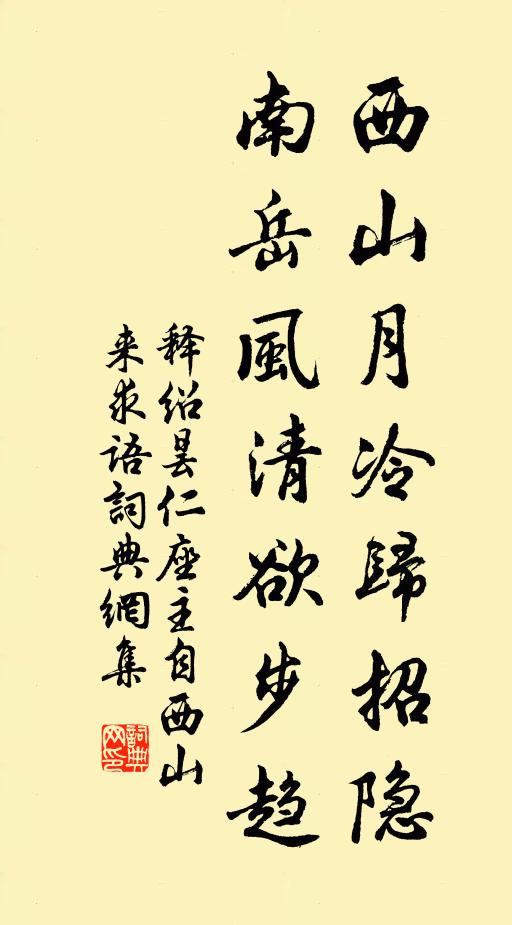 西山月冷歸招隐
南岳風清欲步趋
释绍昙仁座主自西山
来求语詞典網集
詞典网印